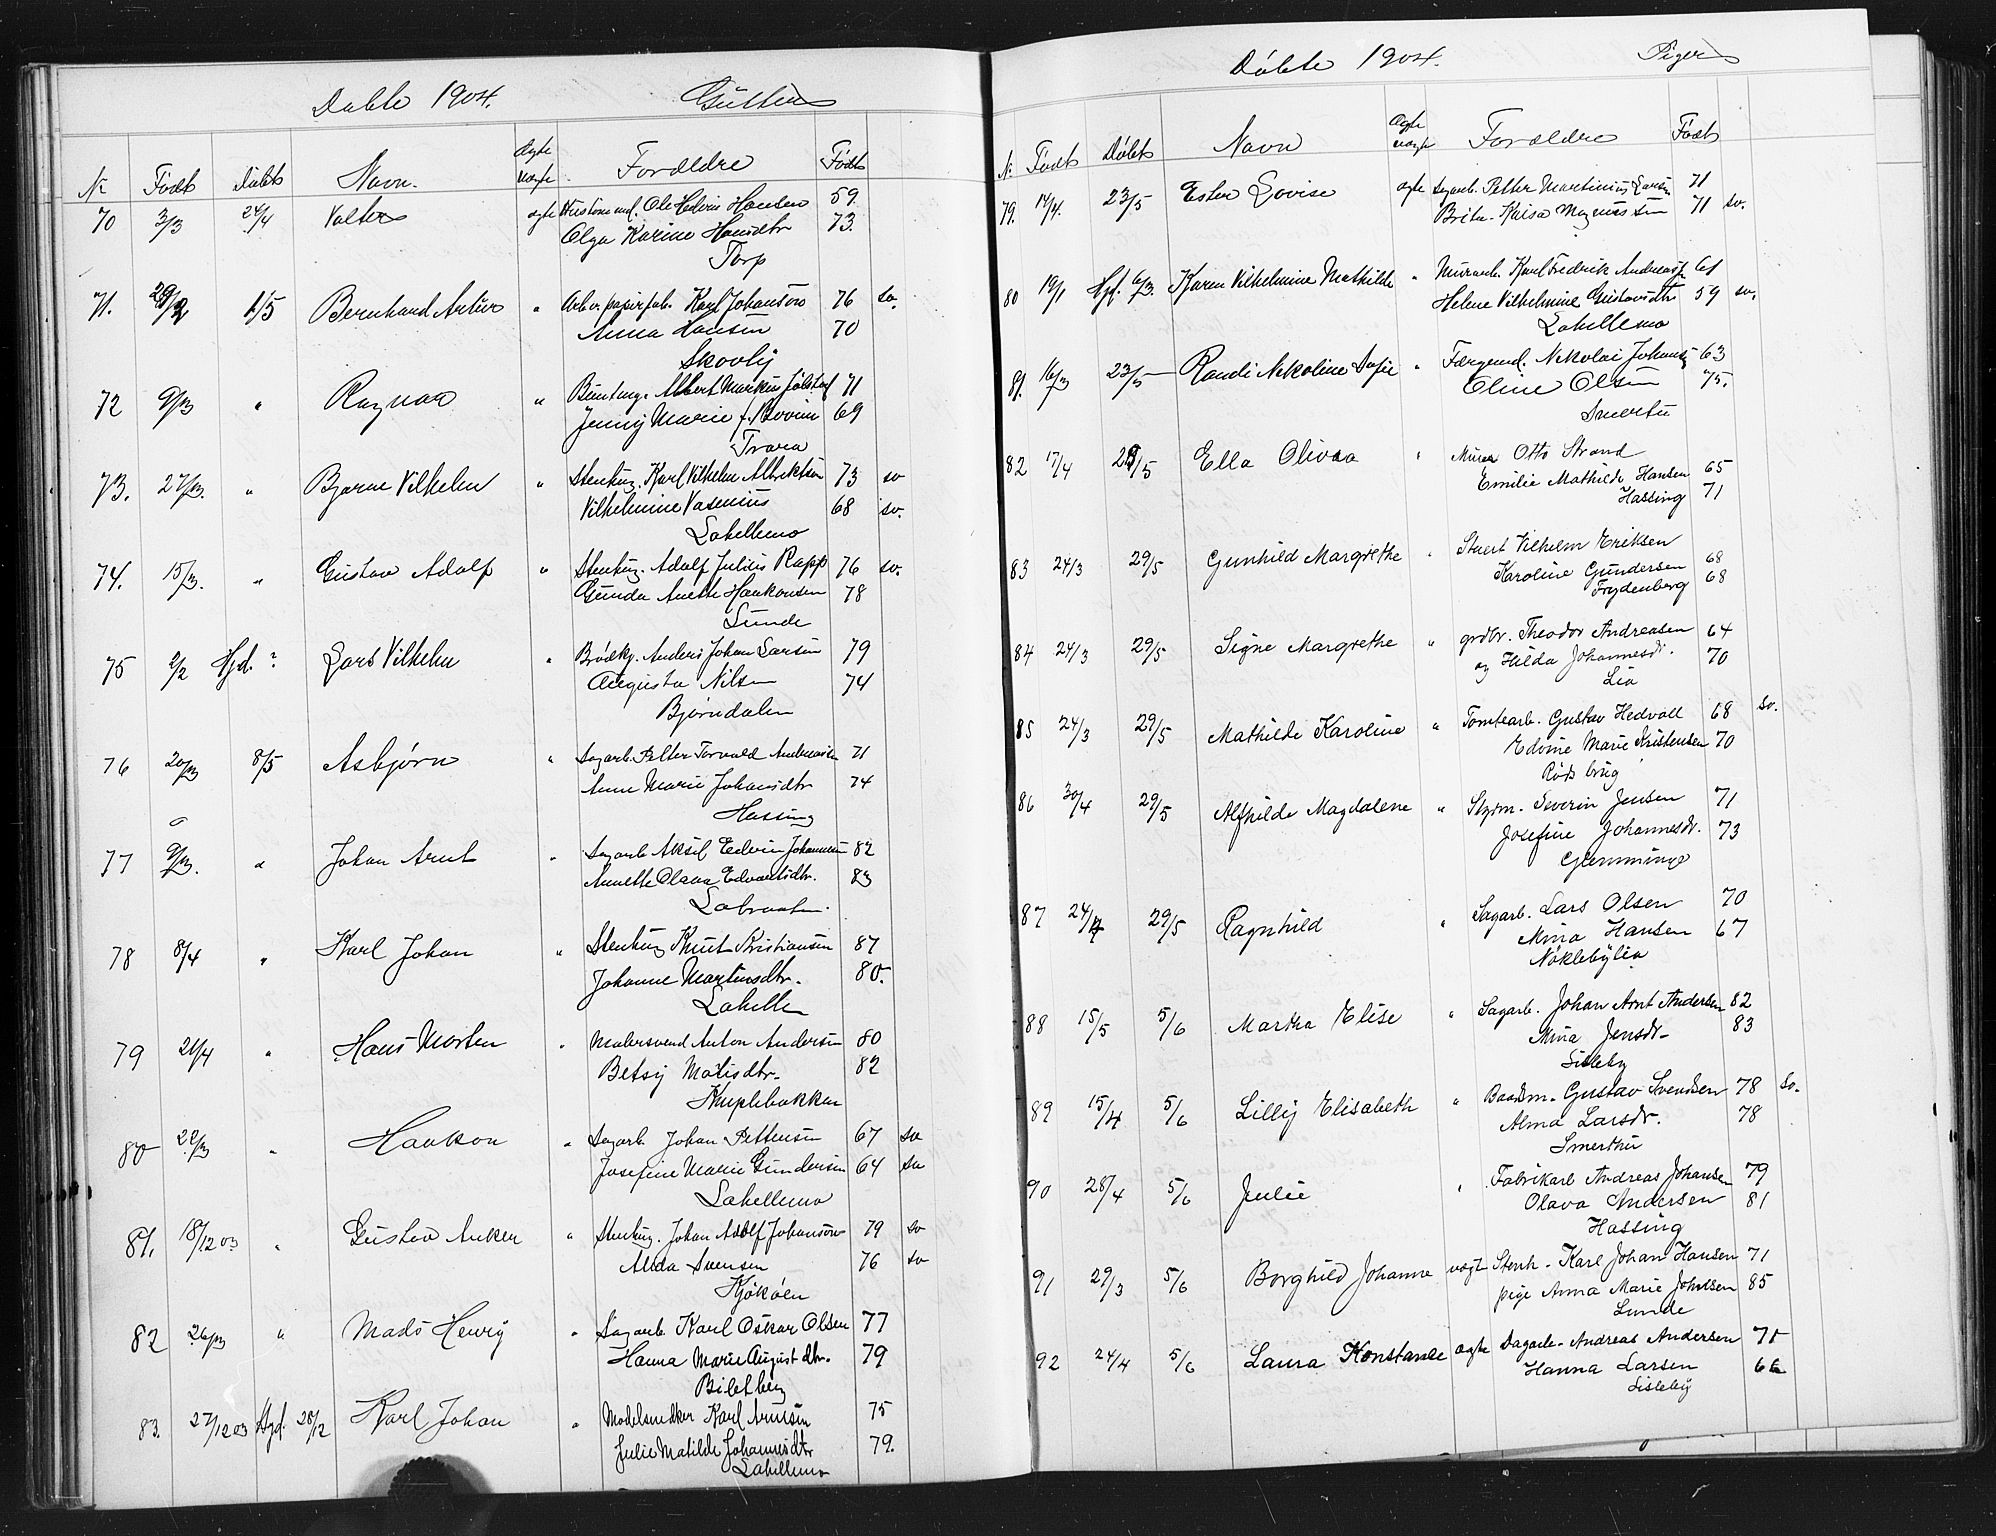 Døbte 1904. Gutter
Nr Født Døbt Navn. Ægte uægte Forældre Født
70 3/3 24/4 Valter ægte Ole Edvin Hansen 59.
Olga Karine Hansdtr 73.
Torp
71. 29/2 1/5 Bernhard Artur " Arb. v. papirfab. Karl Johansson 76 sv.
Anna Hansen 70
Skovly
72 9/3 " Ragnar " Albert Markus 71
Jenny Marie f. Bovim 69
Trara
73. 27/3. " Bjarne Vilhelm " Stenhug. Karl Vilhelm Albrektsen 73 sv
Vilhelmine Vasenius 68 sv.
Labellemo
74. 15/3. " Gustav Adolf " Stenhug. Adolf Julius Rapp 76 sv.
Gunda Anette Haakonsen 78
Lunde
75 2/2 Hjd. ? Lars Vilhelm " Brødkj. Anders Johan Larsen 79
Augusta Nilsen 74
Bjørndalen
76 20/3 8/5 Asbjørn " Sagarb. Petter Torvald Andreasen 71
Anne Marie Johansdtr 74
Hassing
77 9/3. " Johan Arnt " Sagarb. Aksel Edvin Johannesen 82
Annette Olava Edvartsdtr. 83
Labraaten.
78 8/4 " Karl Johan " Stenhug Knut Kristiansen 87
Johanne Martinsdtr. 80.
Labellen
79 21/4 " Hans Morten " Malersvend Anton Andersen 80
Betsy Matisdtr. 82
Kniplebakken
80 22/3 " Haakon " Sagarb. Johan Pettersen 67 sv
Josefine Marie Gundersen 64 sv
Labellemo
81. 18/12 03 " Gustav Anker " Stenhug. Johan Adolf Johansson 79 sv
Alida Svensen 76 sv
Kjøkøen
82 26/3 " Mads Henry " Sagarb. Karl Oskar Olsen 77
Hanna Marie Augustdtr. 79
Biletberg
83. 27/12 03 Hjd. 28/12 Karl Johan " Modelsnedker Karl Arntsen 75
Julie Matilde Johannesdtr 79.
Labellemo
Døbte 1904. Piger
N. Født Døbt Navn Ægte uægte Forældre Født
79. 14/4. 23/5 Ester Lovise ægte Sagarb. Petter Martinius Larsen 71
Brita Kaisa Magnussen 71 sv.
80 19/1 Hjd. 6/3. Karen Vilhelmine Mathilde " Murarb. Karl Fredrik Andreass. 61
Helene Vilhelmine Gustavsdtr 59 sv.
Labellemo
81. 16/3 23/5 Randi Nikoline Sofie " Færgemd. Nikolai Johans. 63
Eline Olsen 75.
Smertu
82 17/4 23/5 Ella Olivia " Murer Otto Strand
Emilie Mathilde Hansen 65
Hassing 71
83 24/3 29/5 Gunhild Margrethe " Stuert Vilhelm Eriksen
Karoline Gundersen 68
Frydenberg 68
84 24/3 29/5 Signe Margrethe " grdbr. Theodor Andreasen 64
og Hilda Johannesdr. 70
Lia
85 24/3 29/5 Mathilde Karoline " Tomtearb. Gustav Hedvall 68 sv.
Edvine Marie Kristensen 70
Røds brug
86 30/4 29/5 Alfhilde Magdalene " Styrm. Severin Jensen 71
Josefine Johannesdr. 73
Glemminge
87 24/4 29/5 Ragnhild " Sagarb. Lars Olsen 70
Mina Hansen 67
Nøklebylia
88 15/5 5/6 Martha Elise " Sagarb. Johan Arnt Andersen 82
Mina Jensdr. 83
Lisleby
89 15/4 5/6 Lilly Elisabeth " Baadsm. Gustav Svendsen 78 sv.
Alma Larsdr. 78
Smerthu
90 28/4 5/6 Julie " Fabrikarb Andreas Johansen 79
Olava Andersen 81
Hassing
91 29/3 5/6 Borghild Johanne uægt Stenh. Karl Johan Hansen 71
pige Anna Marie Johnsen 85
Lunde
92 24/4 5/6 Laura Konstance ægte Dagarb. Andreas Andersen 75
Hanna Larsen 66
Lisleby